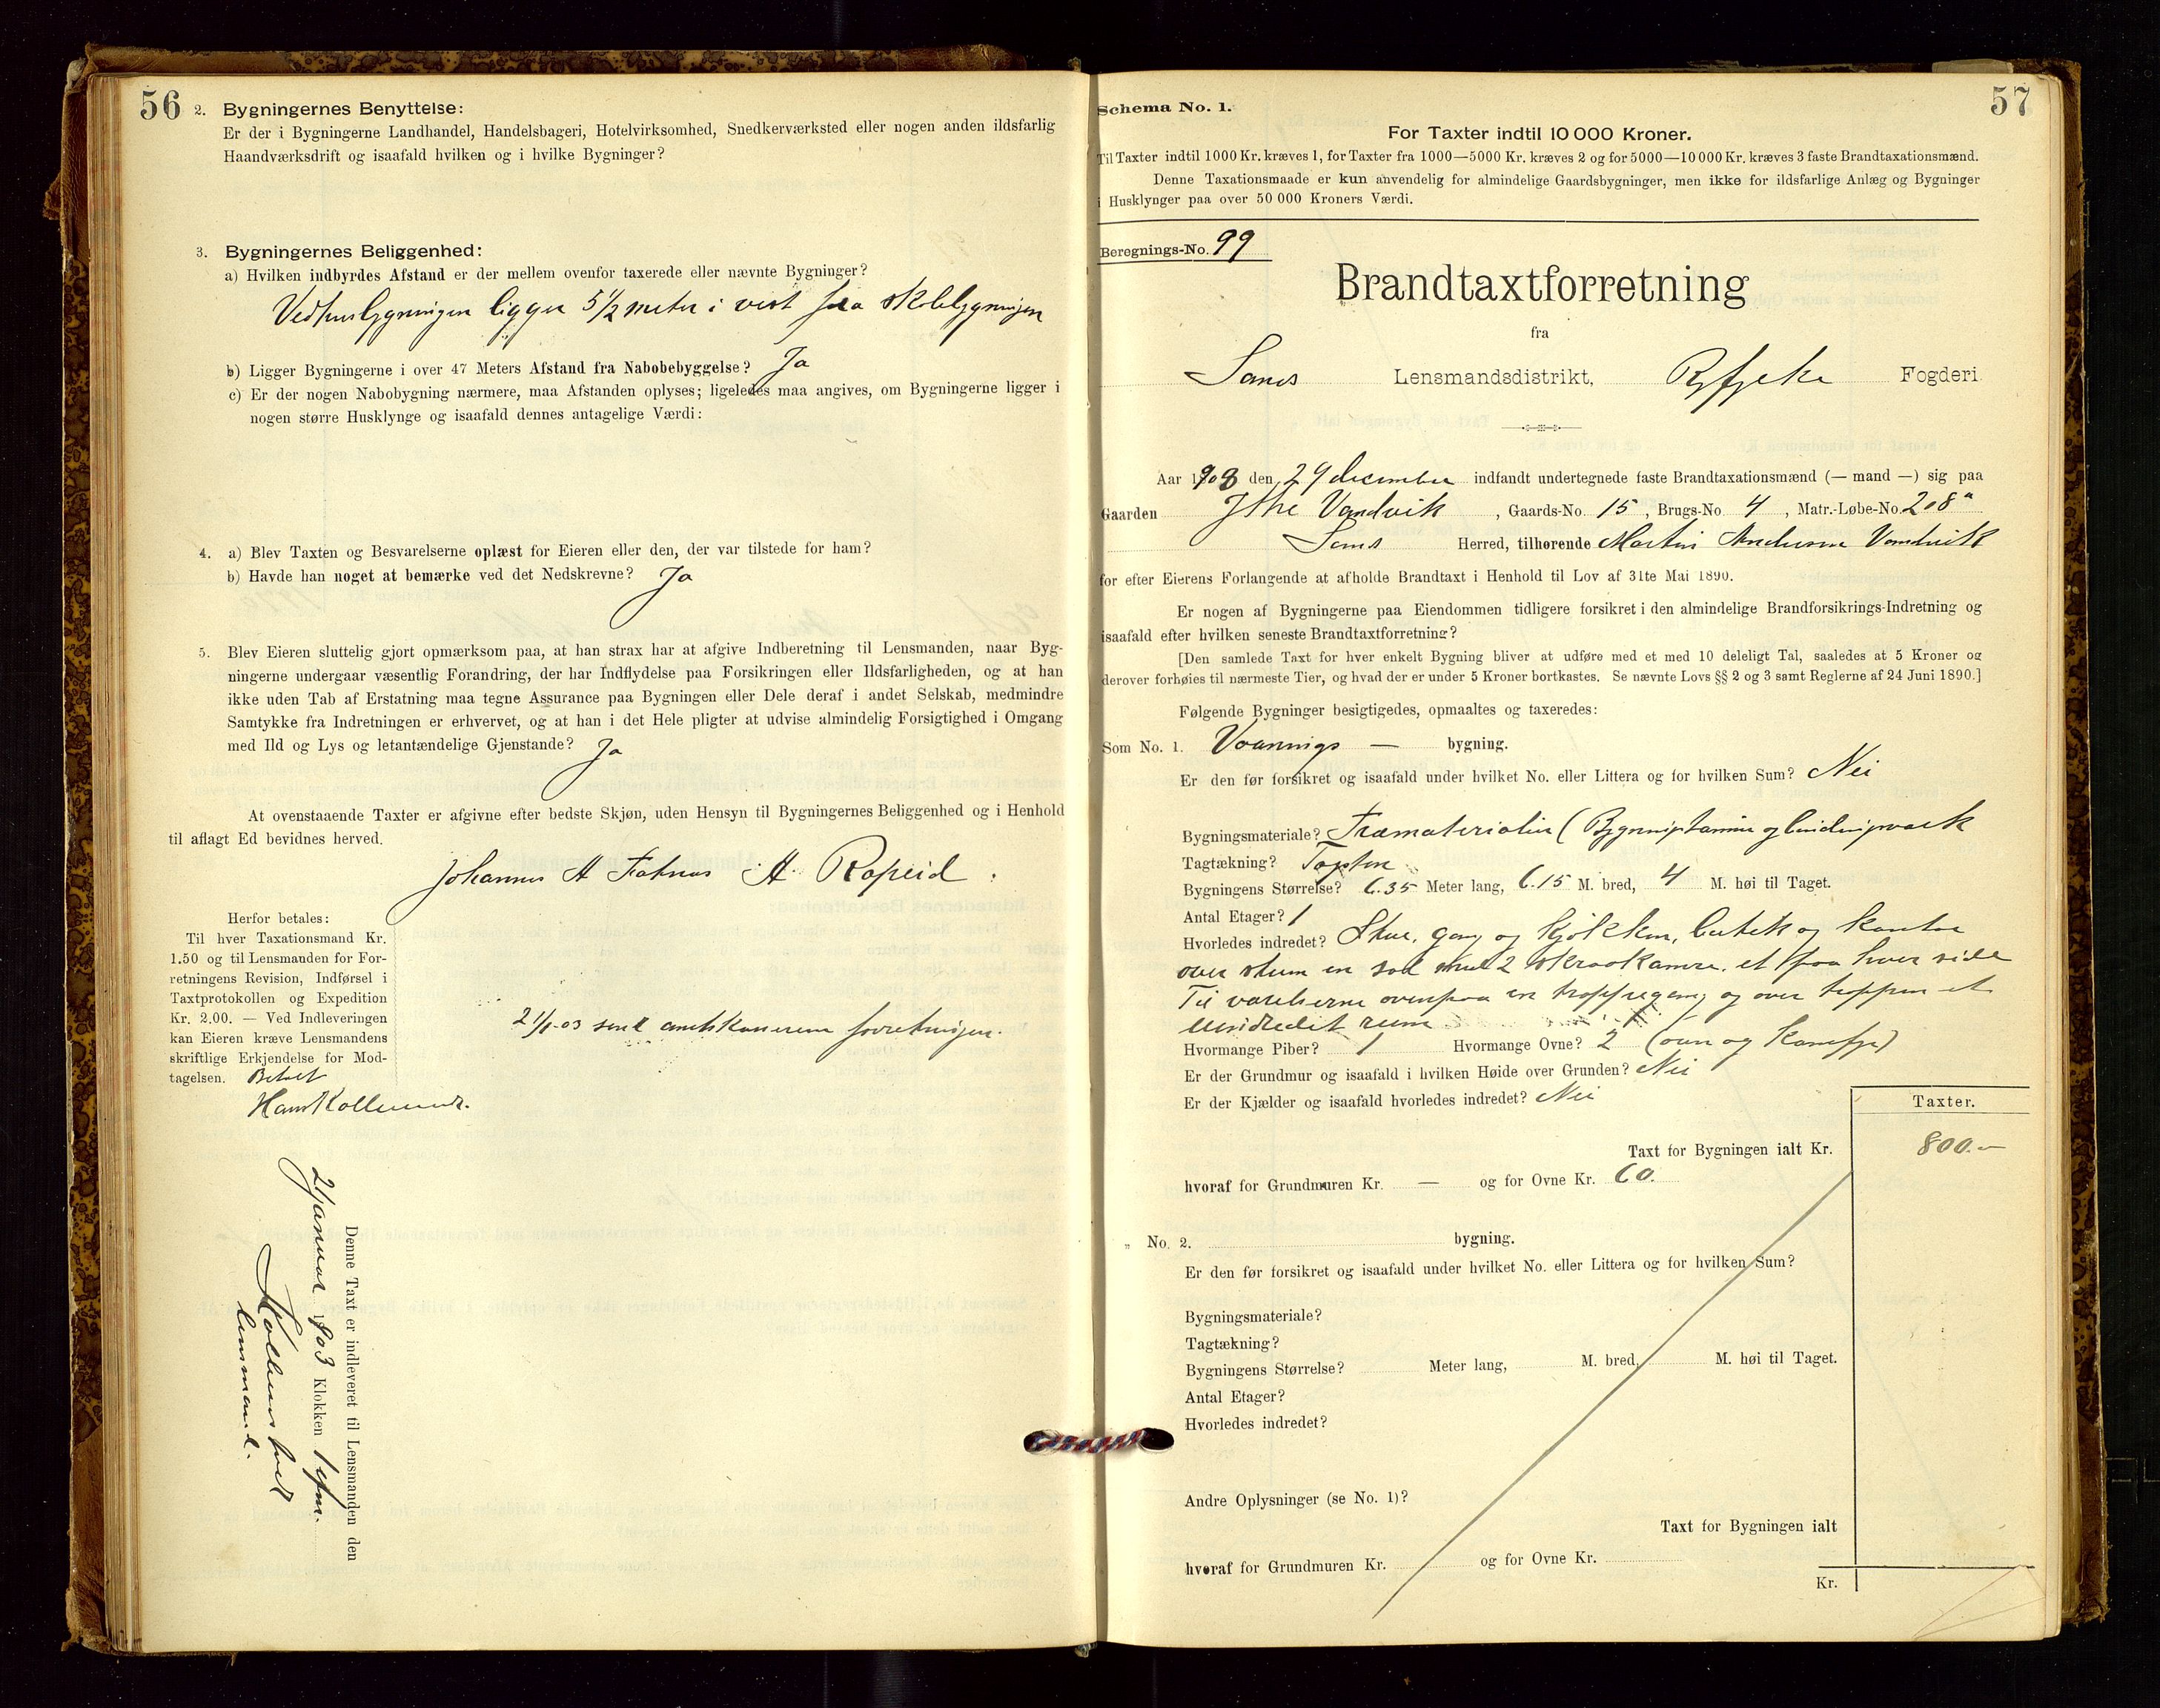 56
2. Bygningernes Benyttelse:
Er der i Bygningerne Landhandel, Handelsbageri, Hotelvirksomhed, Snedkerværksted eller nogen anden ildsfarlig
Haandværksdrift og isaafald hvilken og i hvilke Bygninger?
3. Bygningernes Beliggenhed:
a) Hvilken indbyrdes Afstand er der mellem ovenfor taxerede eller nævnte Bygninger?
Vedhusbygningen ligger 5 1/2 meter i vest fra skolebygningen
b) Ligger Bygningerne i over 47 Meters Afstand fra Nabobebyggelse? Ja
c) Er der nogen Nabobygning nærmere, maa Afstanden oplyses; ligeledes maa angives, om Bygningerne ligger i
nogen større Husklynge og isaafald dennes antagelige Værdi:
4. a) Blev Taxten og Besvarelserne oplæst for Eieren eller den, der var tilstede for ham?
b) Havde han noget at bemærke ved det Nedskrevne? Ja
5. Blev Eieren sluttelig gjort opmærksom paa, at han strax har at afgive Indberetning til Lensmanden, naar Byg-
ningerne undergaar væsentlig Forandring, der har Indflydelse paa Forsikringen eller Ildsfarligheden, og at han
ikke uden Tab af Erstatning maa tegne Assurance paa Bygningen eller Dele deraf i andet Selskab, medmindre
Samtykke fra Indretningen er erhvervet, og at han i det Hele pligter at udvise almindelig Forsigtighed i Omgang
med Ild og Lys og letantændelige Gjenstande? Ja
At ovenstaaende Taxter er afgivne efter bedste Skjøn, uden Hensyn til Bygningernes Beliggenhed og i Henhold
til aflagt Ed bevidnes herved.
Johannes A A. Ropeid.
Herfor betales:
Til hver Taxationsmand Kr.
1.50 og til Lensmanden for For-
retningens Revision, Indførsel i
Taxtprotokollen og Expedition
Kr. 2,00. — Ved Indleveringen
kan Eieren kræve Lensmandens
skriftlige Erkjendelse for Mod-
tagelsen. Betalt
21/1-03 sendt forretningen.
Denne Taxt er indleveret til Lensmanden den
2 januar 1903 Klokken 1 efm.
lensmand.
57
Schema No. 1.
For Taxter indtil 10 000 Kroner.
Til Taxter indtil 1000 Kr. kræves 1, for Taxter fra 1000—5000 Kr. kræves 2 og for 5000—10 000 Kr. kræves 3 faste Brandtaxationsmænd.
Denne Taxationsmaade er kun anvendelig for almindelige Gaardsbygninger, men ikke for ildsfarlige Anlæg og Bygninger
i Husklynger paa over 50 000 Kroners Værdi.
Beregnings-No. 99
Brandtaxtforretning
fra
Sands Lensmandsdistrikt, Ryfylke Fogderi
Aar 1903 den 29 december indfandt undertegnede faste Brandtaxationsmænd (— mand —) sig paa
Gaarden Ytre Vandvik, Gaards-No. 15, Brugs-No. 4, Matr.-Løbe-No. 208a
Sands Herred, tilhørende Martin Andersen Vandvik
for efter Eierens Forlangende at afholde Brandtaxt i Henhold til Lov af 31te Mai 1890.
Er nogen af Bygningerne paa Eiendommen tidligere forsikret i den almindelige Brandforsikrings-Indretning og
isaafald efter hvilken seneste Brandtaxtforretning?
[Den samlede Taxt for hver enkelt Bygning bliver at udføre med et med 10 deleligt Tal, saaledes at 5 Kroner og
derover forhøies til nærmeste Tier, og hvad der er under 5 Kroner bortkastes. Se nævnte Lovs §§ 2 og 3 samt Reglerne af 24 Juni 1890.]
Følgende Bygninger besigtigedes, opmaaltes og taxeredes:
Som No. 1. Vaanings — bygning.
Er den før forsikret og isaafald under hvilket No. eller Littera og for hvilken Sum? Nei
Bygningsmateriale? Træmaterialier (Bygningstømmer og bindingsværk
Tagtækning? Tagsten
Bygningens Størrelse? 6.35 Meter lang, 6.15 M. bred, 4 M. høi til Taget.
Antal Etager? 1
Hvorledes indredet? Stue, gang og kjøkken, butik og kontor
over stuen en sal med 2 skraakamre, et paa hver side
Til værelserne ovenpaa en trappegang og over trappen et
uindredet rum
Hvormange Piber? 1 Hvormange Ovne? 2 (ovn og komfyr)
Er der Grundmur og isaafald i hvilken Høide over Grunden? Nei
Er der Kjælder og isaafald hvorledes indredet? Nei
Taxter.
Taxt for Bygningen ialt Kr. 800.—
hvoraf for Grundmuren Kr. — og for Ovne Kr. 60.
„ No. 2. bygning.
Er den før forsikret og isaafald under hvilket No. eller Littera og for hvilken Sum?
Bygningsmateriale?
Tagtækning?
Bygningens Størrelse? Meter lang, M. bred, M. høi til Taget.
Antal Etager?
Hvorledes indredet?
Andre Oplysninger (se No. 1)?
Taxt for Bygningen ialt
hvoraf for Grundmuren Kr. og for Ovne Kr.
Kr.